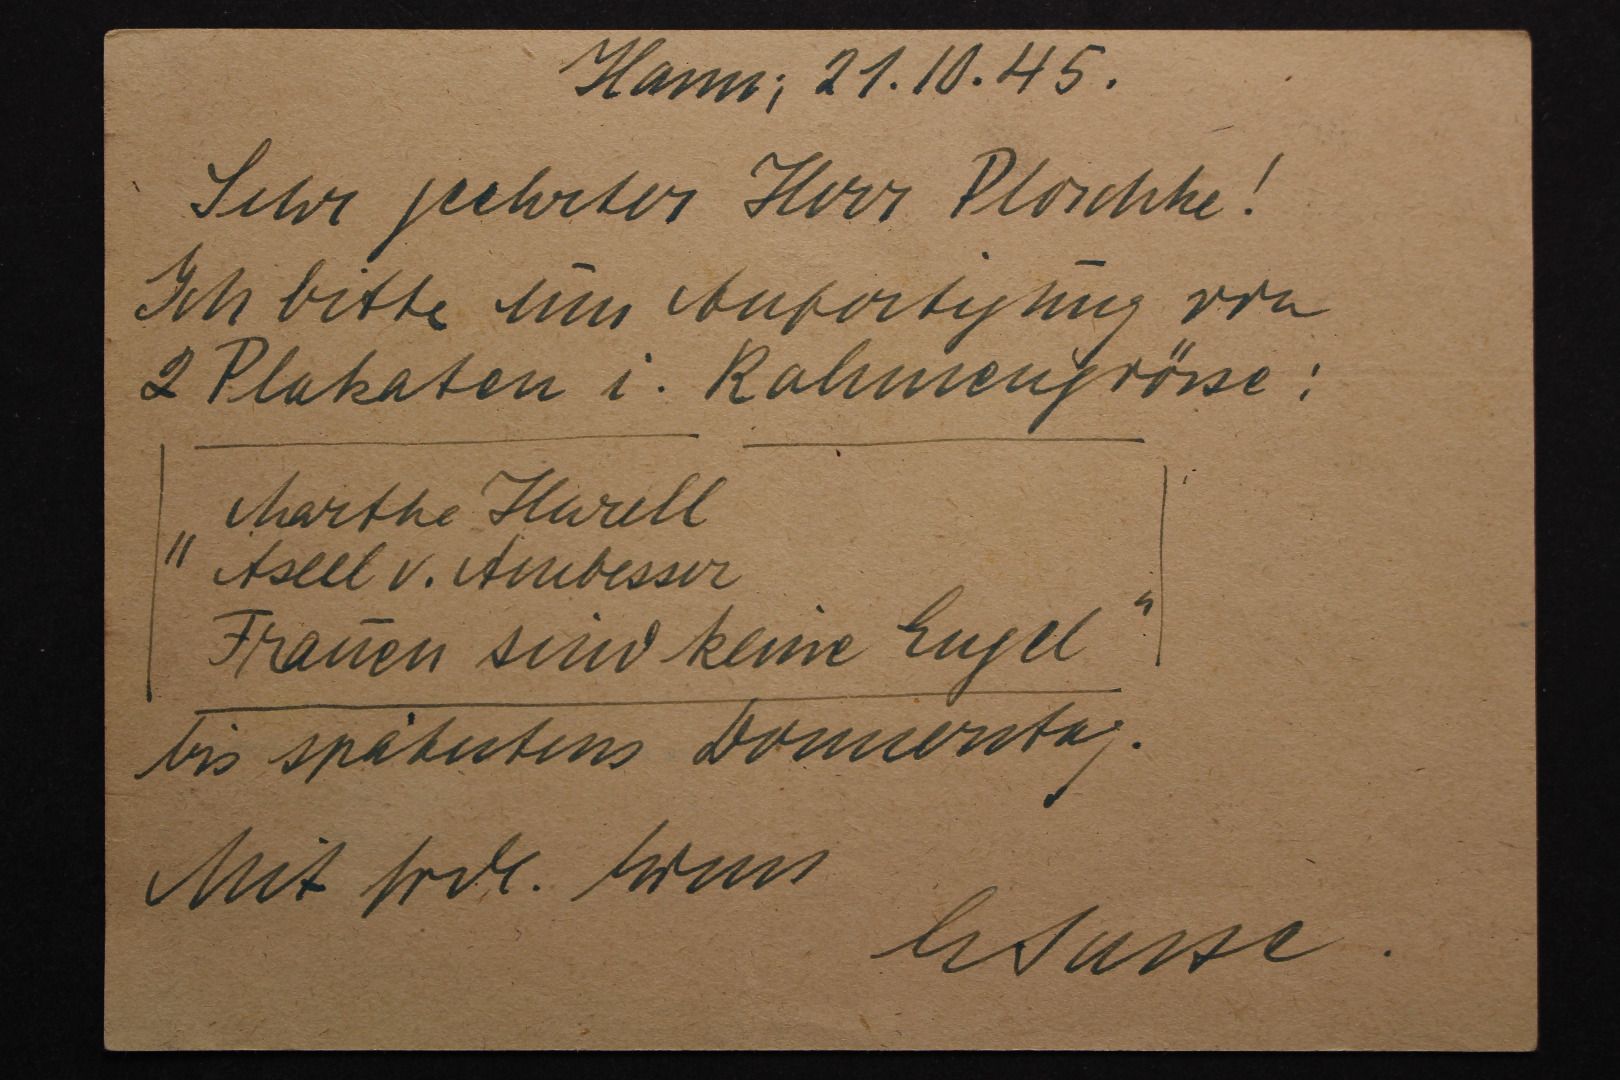 Hann; 21.10.45.
Sehr geehrter Herr Ploschke!
Ich bitte um Anfertigung von
2 Plakaten i. Rahmengrösse:
" Marthe Harell
Axel v. Ambesser
Frauen sind keine Engel "
bis spätestens Donnerstag.
Mit frdl. Gruss